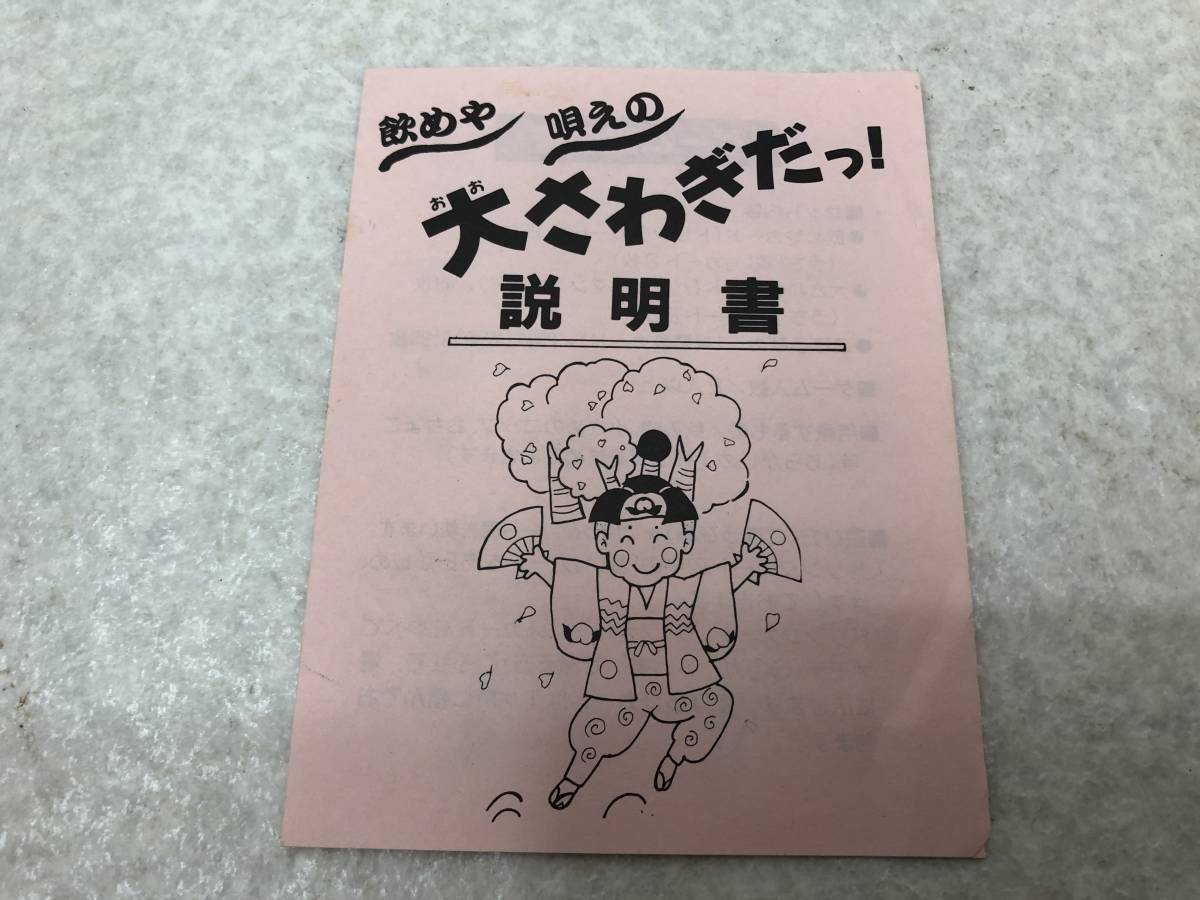 飲めや 唄えの
大さわぎだっ!
おお
説明書